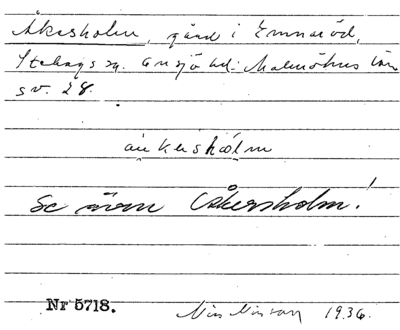 Åkesholm, gård i Emmaröd,
Stehags sn. Onsjö hd. Malmöhus län
sv. 28.
åikersholm
Se även Åkersholm!
Nr 5718. 1936